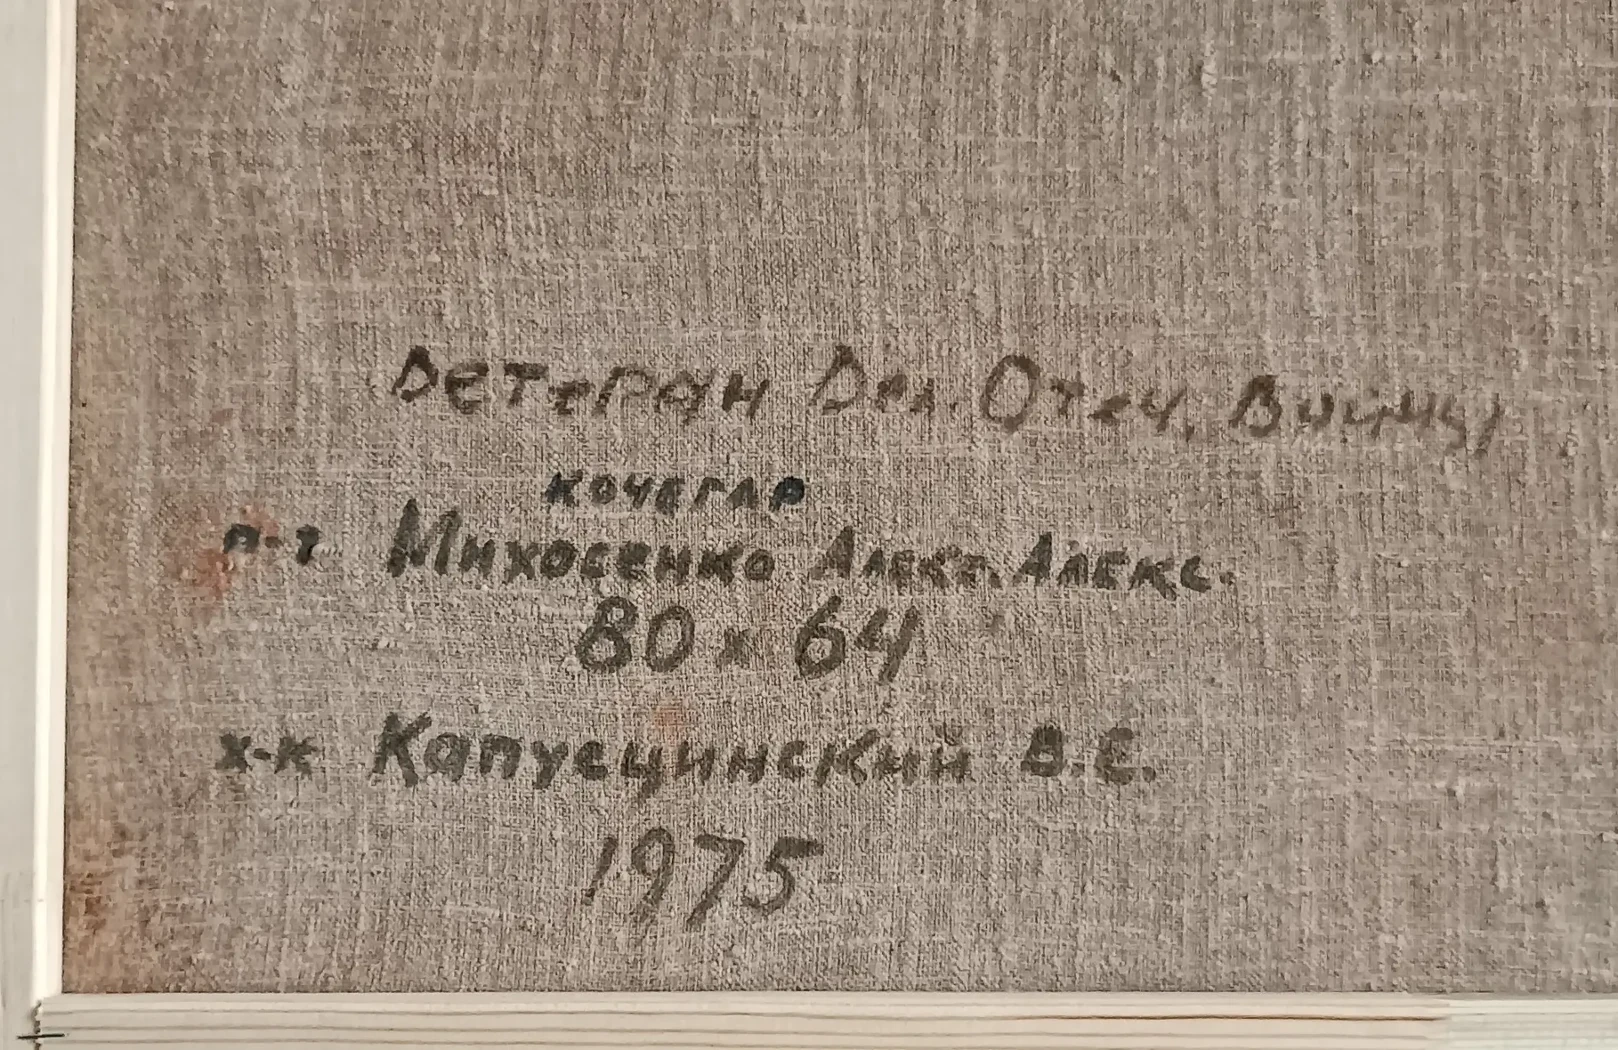 Ветеран Вел. Отеч. Войны
кочегар
п-т Михосенко Алект. Алекс.
80 х 64
х-к Капусцинский В.Е.
1975